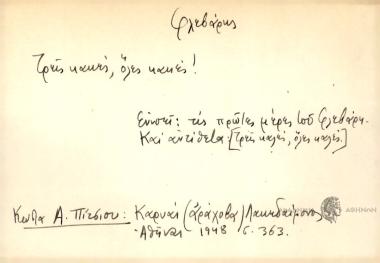 Φλεβάρης
Τρεῖς κακές, ὅλες κακές!
Ἐννοεῖ: τις πρῶτες μέρες τοῦ Φλεβάρη.
Και ἀντίθετα: [Τρεῖς καλές, ὅλες καλές.]
Κωστα Α. Πίτσιου: Καρυαί (Ἀράχοβα) Λακεδαίμονος
Ἀθῆναι 1948 σ. 363.
ΑΘΗΝΩΝ